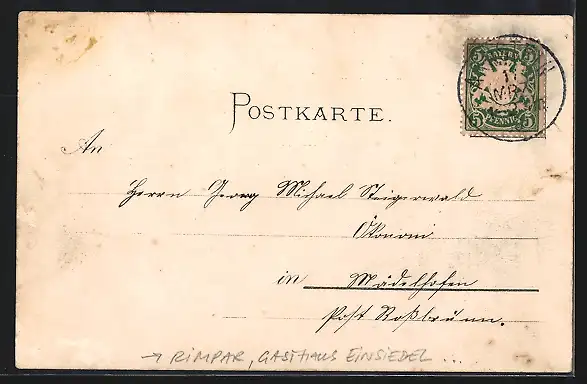 BAYERN
5 5
PFENNIG
POSTKARTE.
An
Herrn Georg Michael Steigerwald
Ökonom
in Mädelhofen
Post Roßbrunn.
→ RIMPAR, GASTHAUS EINSIEDEL ...